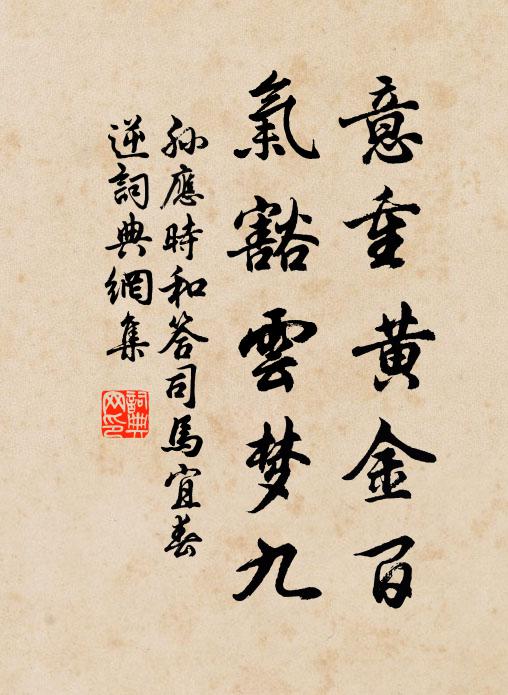 意重黄金百
氣豁雲梦九
孫應時和答司馬宜春
逆詞典網集
詞典网印